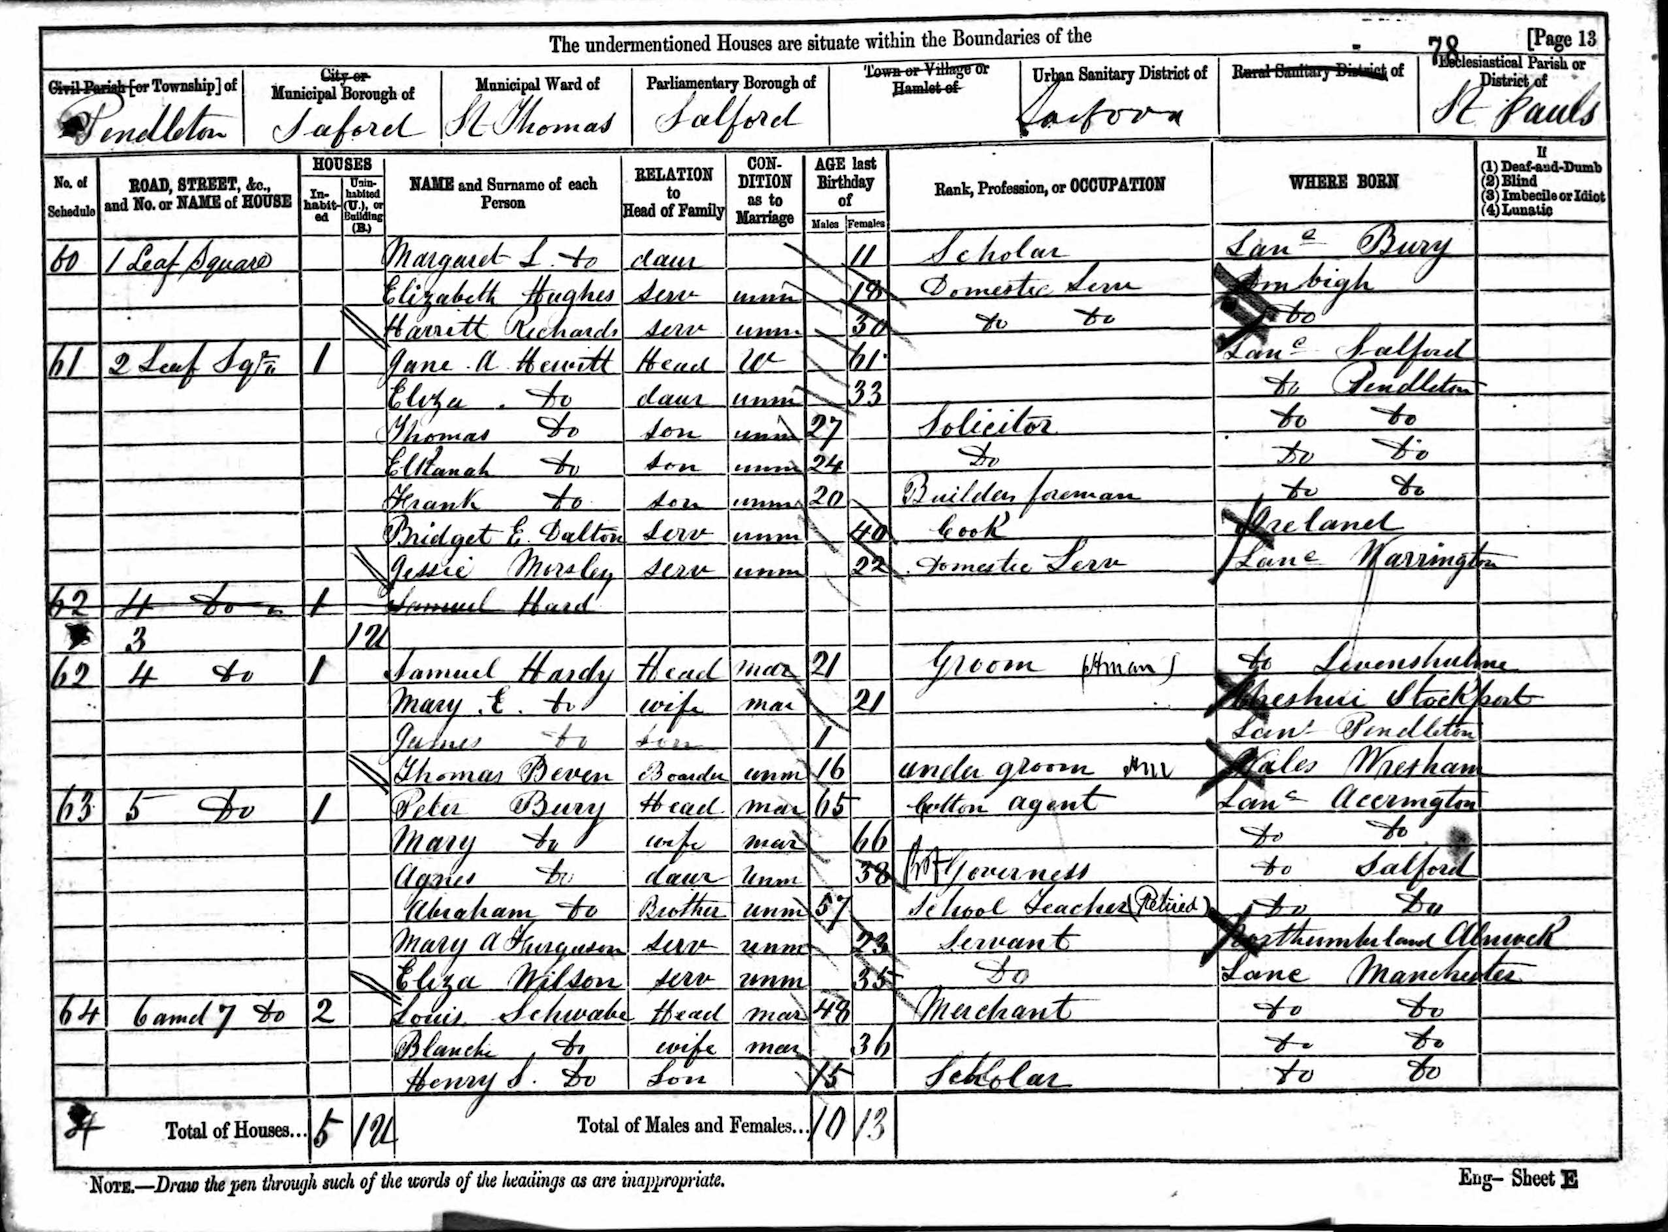 The undermentioned Houses are situate within the Boundaries of the
78 [Page 13
Civil Parish [or Township] of
Pendleton
City or Municipal Borough of
Saford
Municipal Ward of
St Thomas
Parliamentary Borough of
Salford
Town or Village or Hamlet of
Urban Sanitary District of
Rural Sanitary District of
Ecclesiastical Parish or District of
St Pauls
No. of Schedule
ROAD, STREET, &c., and No. or NAME of HOUSE
HOUSES
In-habit-ed
Unin-habited (U.), or Building (B.)
NAME and Surname of each Person
RELATION to Head of Family
CON-DITION as to Marriage
AGE last Birthday of
Males Females
Rank, Profession, or OCCUPATION
WHERE BORN
If
(1) Deaf-and-Dumb
(2) Blind
(3) Imbecile or Idiot
(4) Lunatic
60 1 Leaf Square Margaret L. do daur 11 Scholar Lanc Bury
Elizabeth Hughes serv unm 18 Domestic Serv Denbigh
Harriett Richards serv unm 30 do do do
61 2 Leaf Sqre 1 Jane A Hewitt Head W 61 Lanc Salford
Eliza do daur unm 33 do Pendleton
Thomas do son unm 27 Solicitor do do
Elkanah do son unm 24 Do do do
Frank do son unm 20 Builders foreman do do
Bridget E. Dalton serv unm 40 Cook Ireland
Jessie Morsley serv unm 22 Domestic Serv Lanc Warrington
62 4 do 1 Samuel Hard
3 1U
62 4 do 1 Samuel Hardy Head mar 21 Groom do Levenshulme
Mary E. do wife mar 21 Cheshire Stockport
James do son 1 Lanc Pendleton
Thomas Beven Boarder unm 16 under groom Wales Wrexham
63 5 Do 1 Peter Bury Head mar 65 Cotton agent Lanc Accrington
Mary do wife mar 66 do do
Agnes do daur unm 38 Governess do Salford
Abraham do Brother unm 57 School Teacher (Retired) do do
Mary A Furguson serv unm 23 Servant Northumberland Alnwick
Eliza Wilson serv unm 35 Do Lanc Manchester
64 6 and 7 do 2 Louis Schwabe Head mar 48 Merchant do do
Blanche do wife mar 36 do do
Henry S. do Son 15 Scholar do do
4 Total of Houses... 5 1U Total of Males and Females... 10 13
NOTE.—Draw the pen through such of the words of the headings as are inappropriate.
Eng- Sheet E